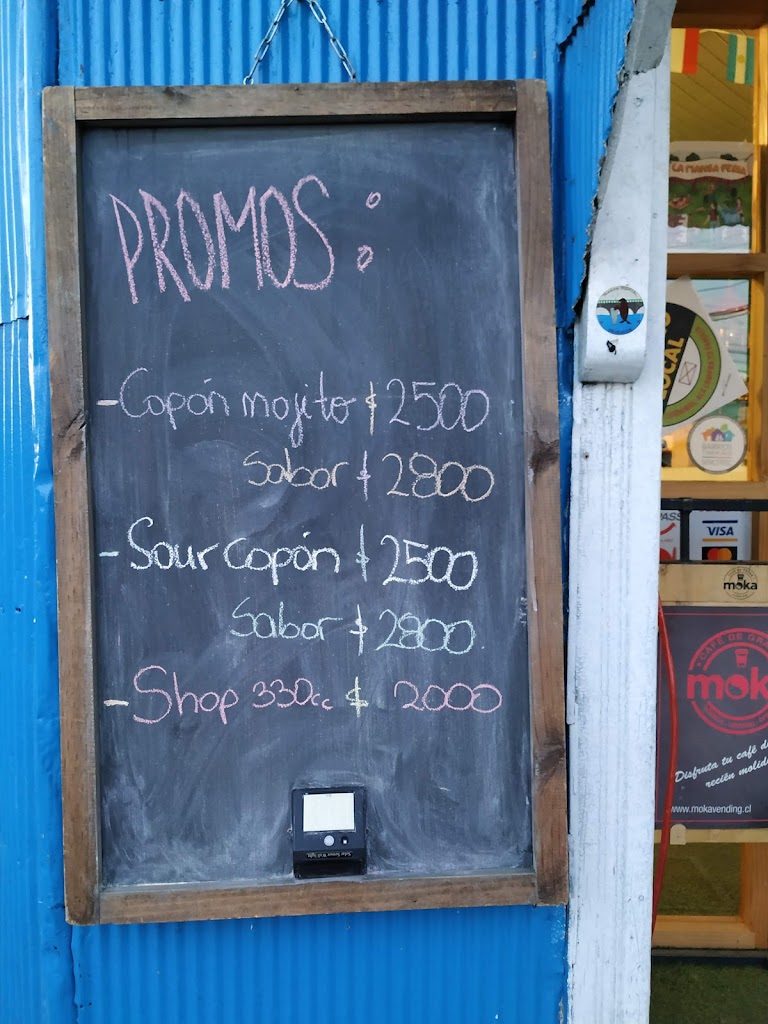 PROMOS:
- Copón mojito $ 2500
Sabor $ 2800
- Sour copón $ 2500
Sabor $ 2800
- Shop 330cc $ 2000
LA MANSA FERIA
LOCAL
VISA
moka
CAFÉ DE GRA
mok
Disfruta tu café d
recién molid
www.mokavending.cl